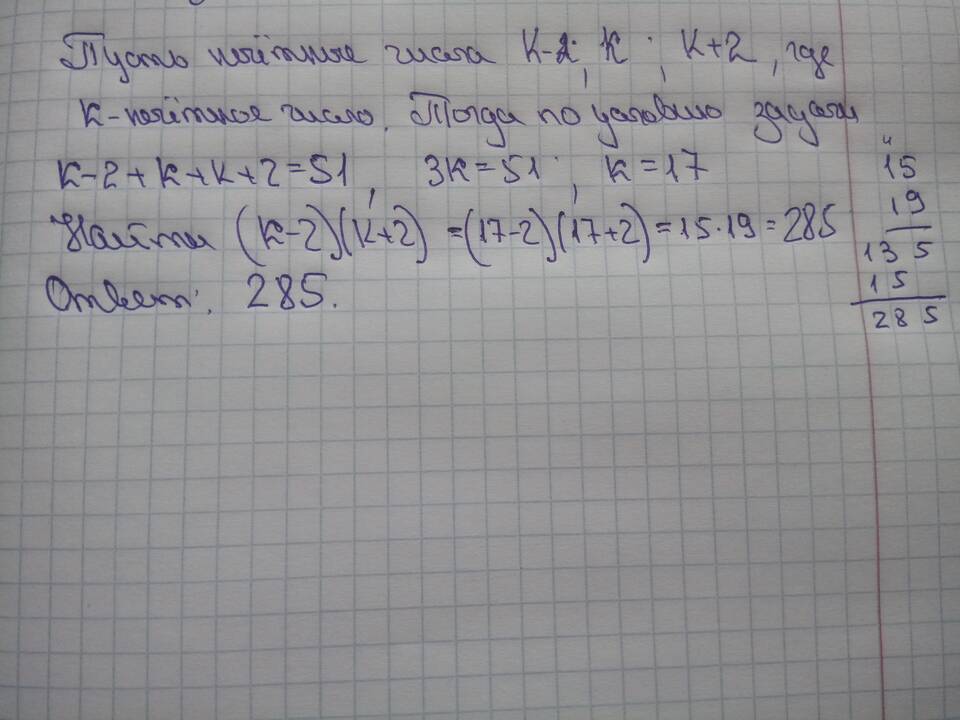 Пусть нечётные числа К-2; К; К+2, где
К-нечётное число. Тогда по условию задачи
К-2+К+К+2=51; 3К=51; К=17
Найти (К-2)(К+2) =(17-2)(17+2)=15·19=285
Ответ: 285.
4
15
19
135
15
285